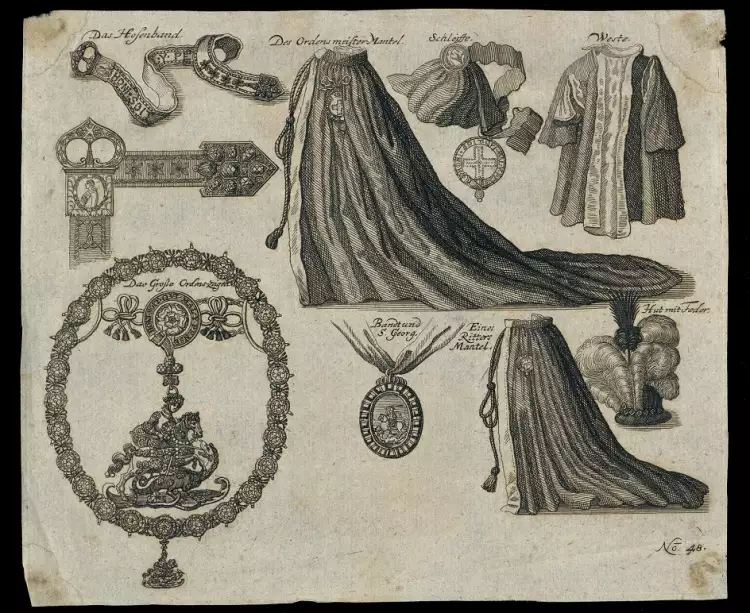 Das Hosenband.
Des Ordens meister Mantel.
Schleiffe.
Weste.
Das Große Ordenszeigen
Bandt und
S Georg.
Eines
Ritters
Mantel.
Hut mit Feder.
No. 48.